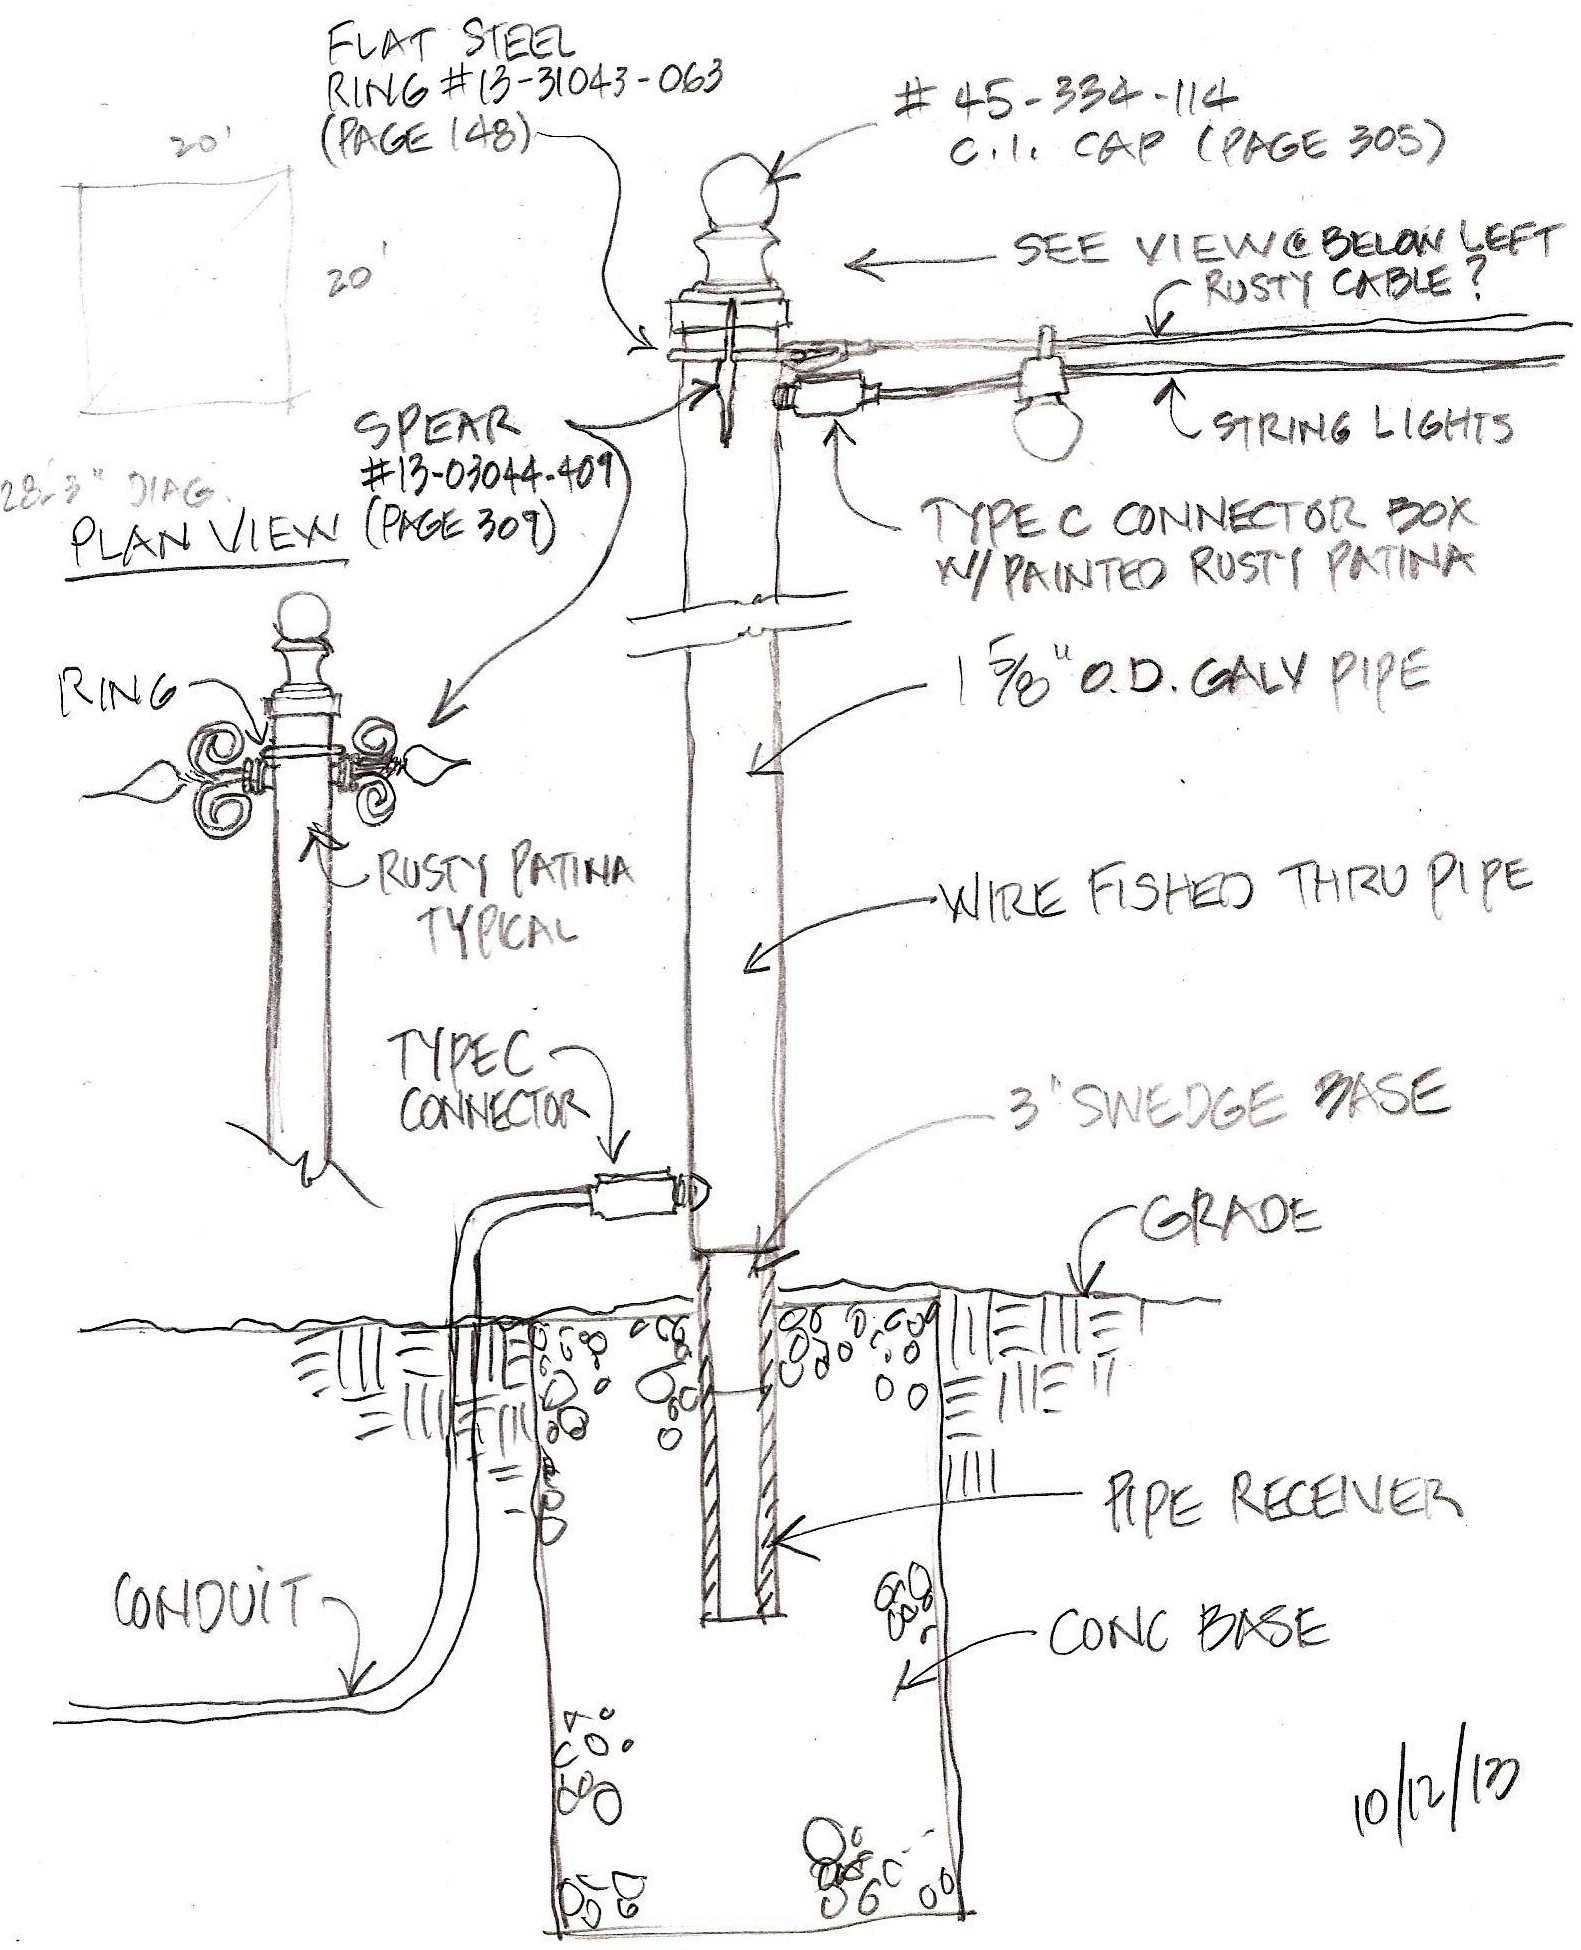 FLAT STEEL
RING #13-31043-063
(PAGE 148)
# 45-334-114
C.I. CAP (PAGE 305)
20'
20'
SEE VIEW @ BELOW LEFT
RUSTY CABLE?
STRING LIGHTS
SPEAR
#13-03044-409
(PAGE 309)
28'-3" DIAG.
PLAN VIEW
TYPE C CONNECTOR BOX
W/ PAINTED RUSTY PATINA
RING
1 5/8" O.D. GALV PIPE
RUSTY PATINA
TYPICAL
WIRE FISHED THRU PIPE
TYPE C
CONNECTOR
3" SWEDGE BASE
GRADE
PIPE RECEIVER
CONDUIT
CONC BASE
10/12/13